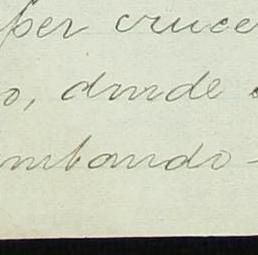 per cruce
o, donde
mbando -